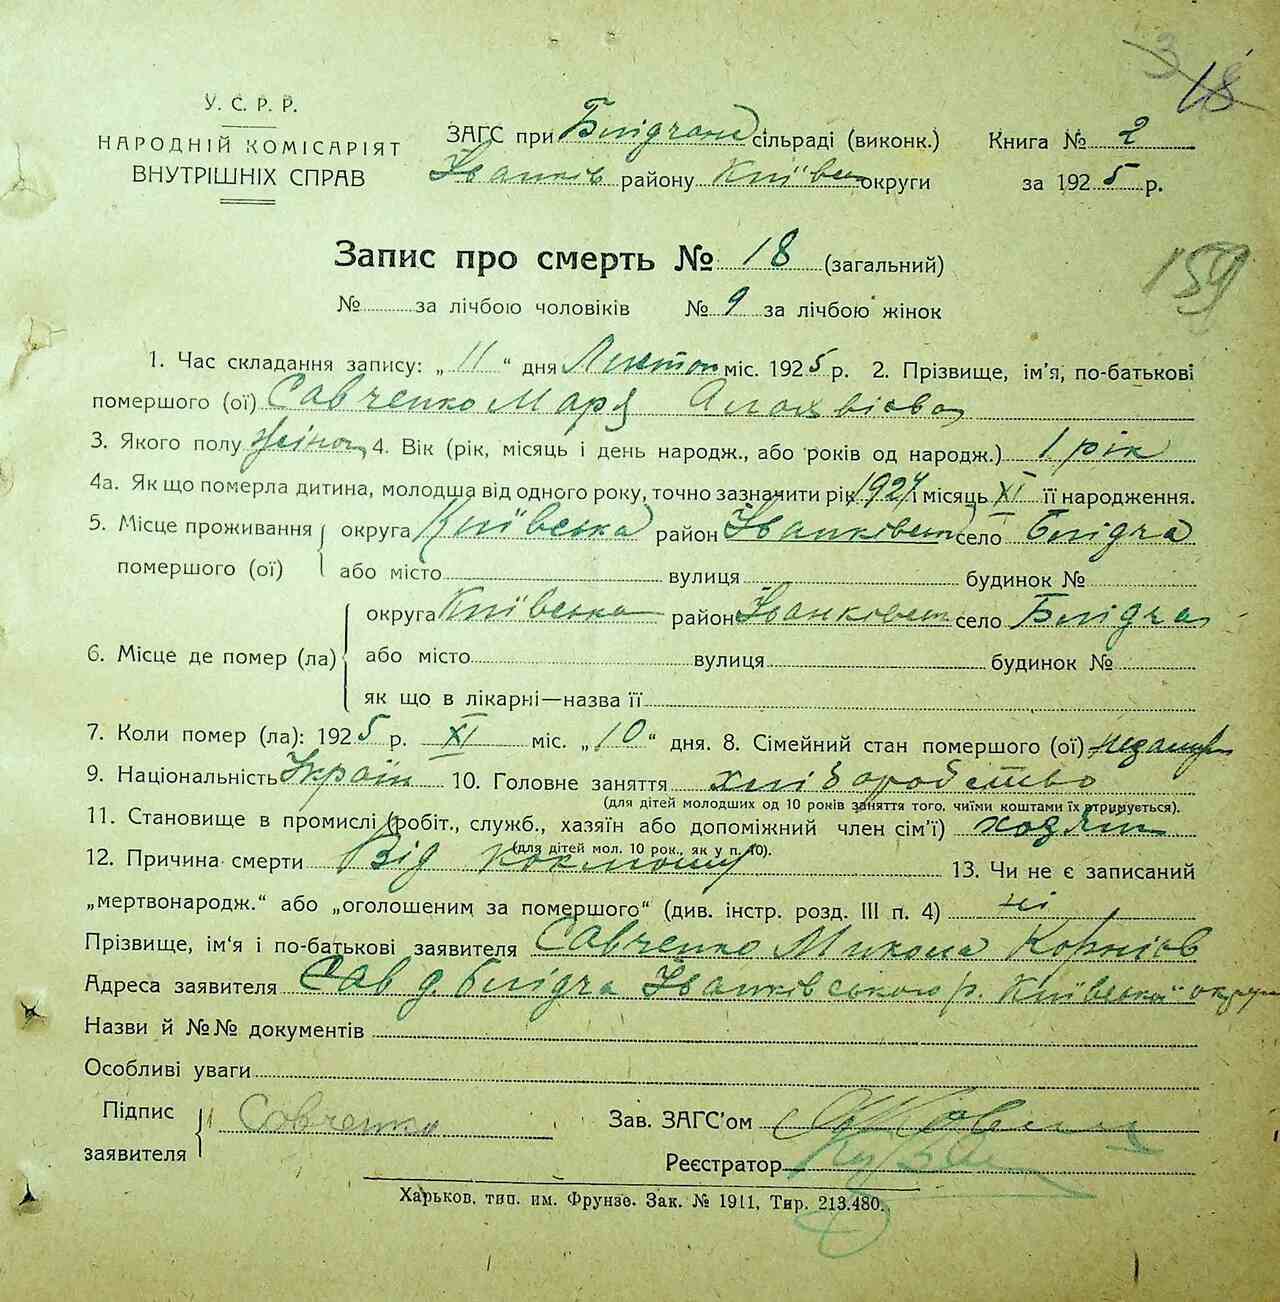 18
У. С. Р. Р.
НАРОДНІЙ КОМІСАРІЯТ
ВНУТРІШНІХ СПРАВ
ЗАГС при сільраді (виконк.)
Іванків району Київськ округи
Книга № 2
за 1925 р.
159
Запис про смерть № 18 (загальний)
№ за лічбою чоловіків № 9 за лічбою жінок
1. Час складання запису: „11“ дня Листоп міс. 1925 р. 2. Прізвище, ім'я, по-батькові
помершого (ої) Савченко Марія
3. Якого полу жіноч 4. Вік (рік, місяць і день народж., або років од народж.) 1 рік
4а. Як що померла дитина, молодша від одного року, точно зазначити рік 1924 і місяць XI її народження.
5. Місце проживання округа Київська район Іванківськ село Блідча
помершого (ої) або місто вулиця будинок №
округа Київська район Іванківськ село Блідча
6. Місце де помер (ла) або місто вулиця будинок №
як що в лікарні—назва її
7. Коли помер (ла): 1925 р. XI міс. „10“ дня. 8. Сімейний стан помершого (ої)
9. Національність Україн 10. Головне заняття хліборобство
(для дітей молодших од 10 років заняття того, чиїми коштами їх втримується).
11. Становище в промислі (робіт., служб., хазяїн або допоміжний член сім'ї)
(для дітей мол. 10 рок., як у п. 10).
12. Причина смерти Від коклюшу 13. Чи не є записаний
„мертвонародж.“ або „оголошеним за помершого“ (див. інстр. розд. III п. 4) ні
Прізвище, ім'я і по-батькові заявителя Савченко Микола Корнієв
Адреса заявителя с. Блідча Іванківського р. Київської округи
Назви й №№ документів
Особливі уваги
Підпис заявителя Савченко
Зав. ЗАГС'ом
Реєстратор
Харьков, тип. им. Фрунзе. Зак. № 1911, Тир. 213.480.